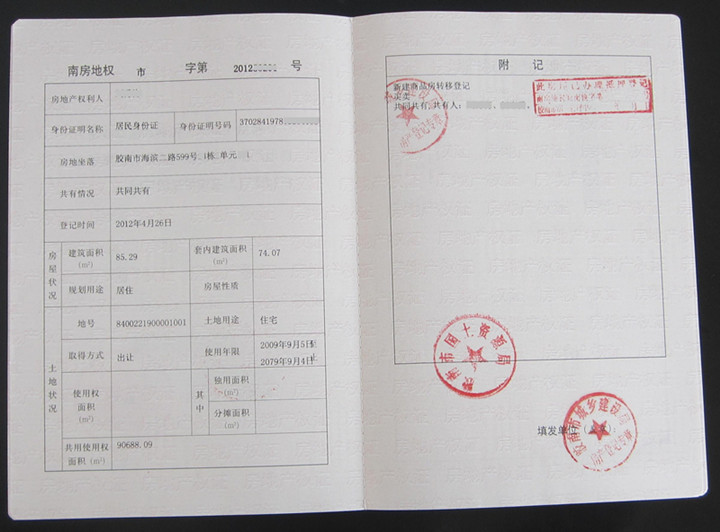 南房地权 市 字第 2012 号
房地产权利人
身份证明名称 居民身份证 身份证明号码 3702841978
房地坐落 胶南市海滨二路599号 栋 单元
共有情况 共同共有
登记时间 2012年4月26日
房屋状况 建筑面积(m²) 85.29 套内建筑面积(m²) 74.07
规划用途 居住 房屋性质
土地状况 地号 8400221900001001 土地用途 住宅
取得方式 出让 使用年限 2009年9月5日起
2079年9月4日止
使用权面积(m²) 其中 独用面积(m²)
分摊面积(m²)
共用使用权面积(m²) 90688.09
附 记
新建商品房转移登记
买卖
共同共有,共有人:
此房屋已办理抵押登记
房产登记专用章
胶南市国土资源局
填发单位(
胶南市城乡建设局
房产登记专用章